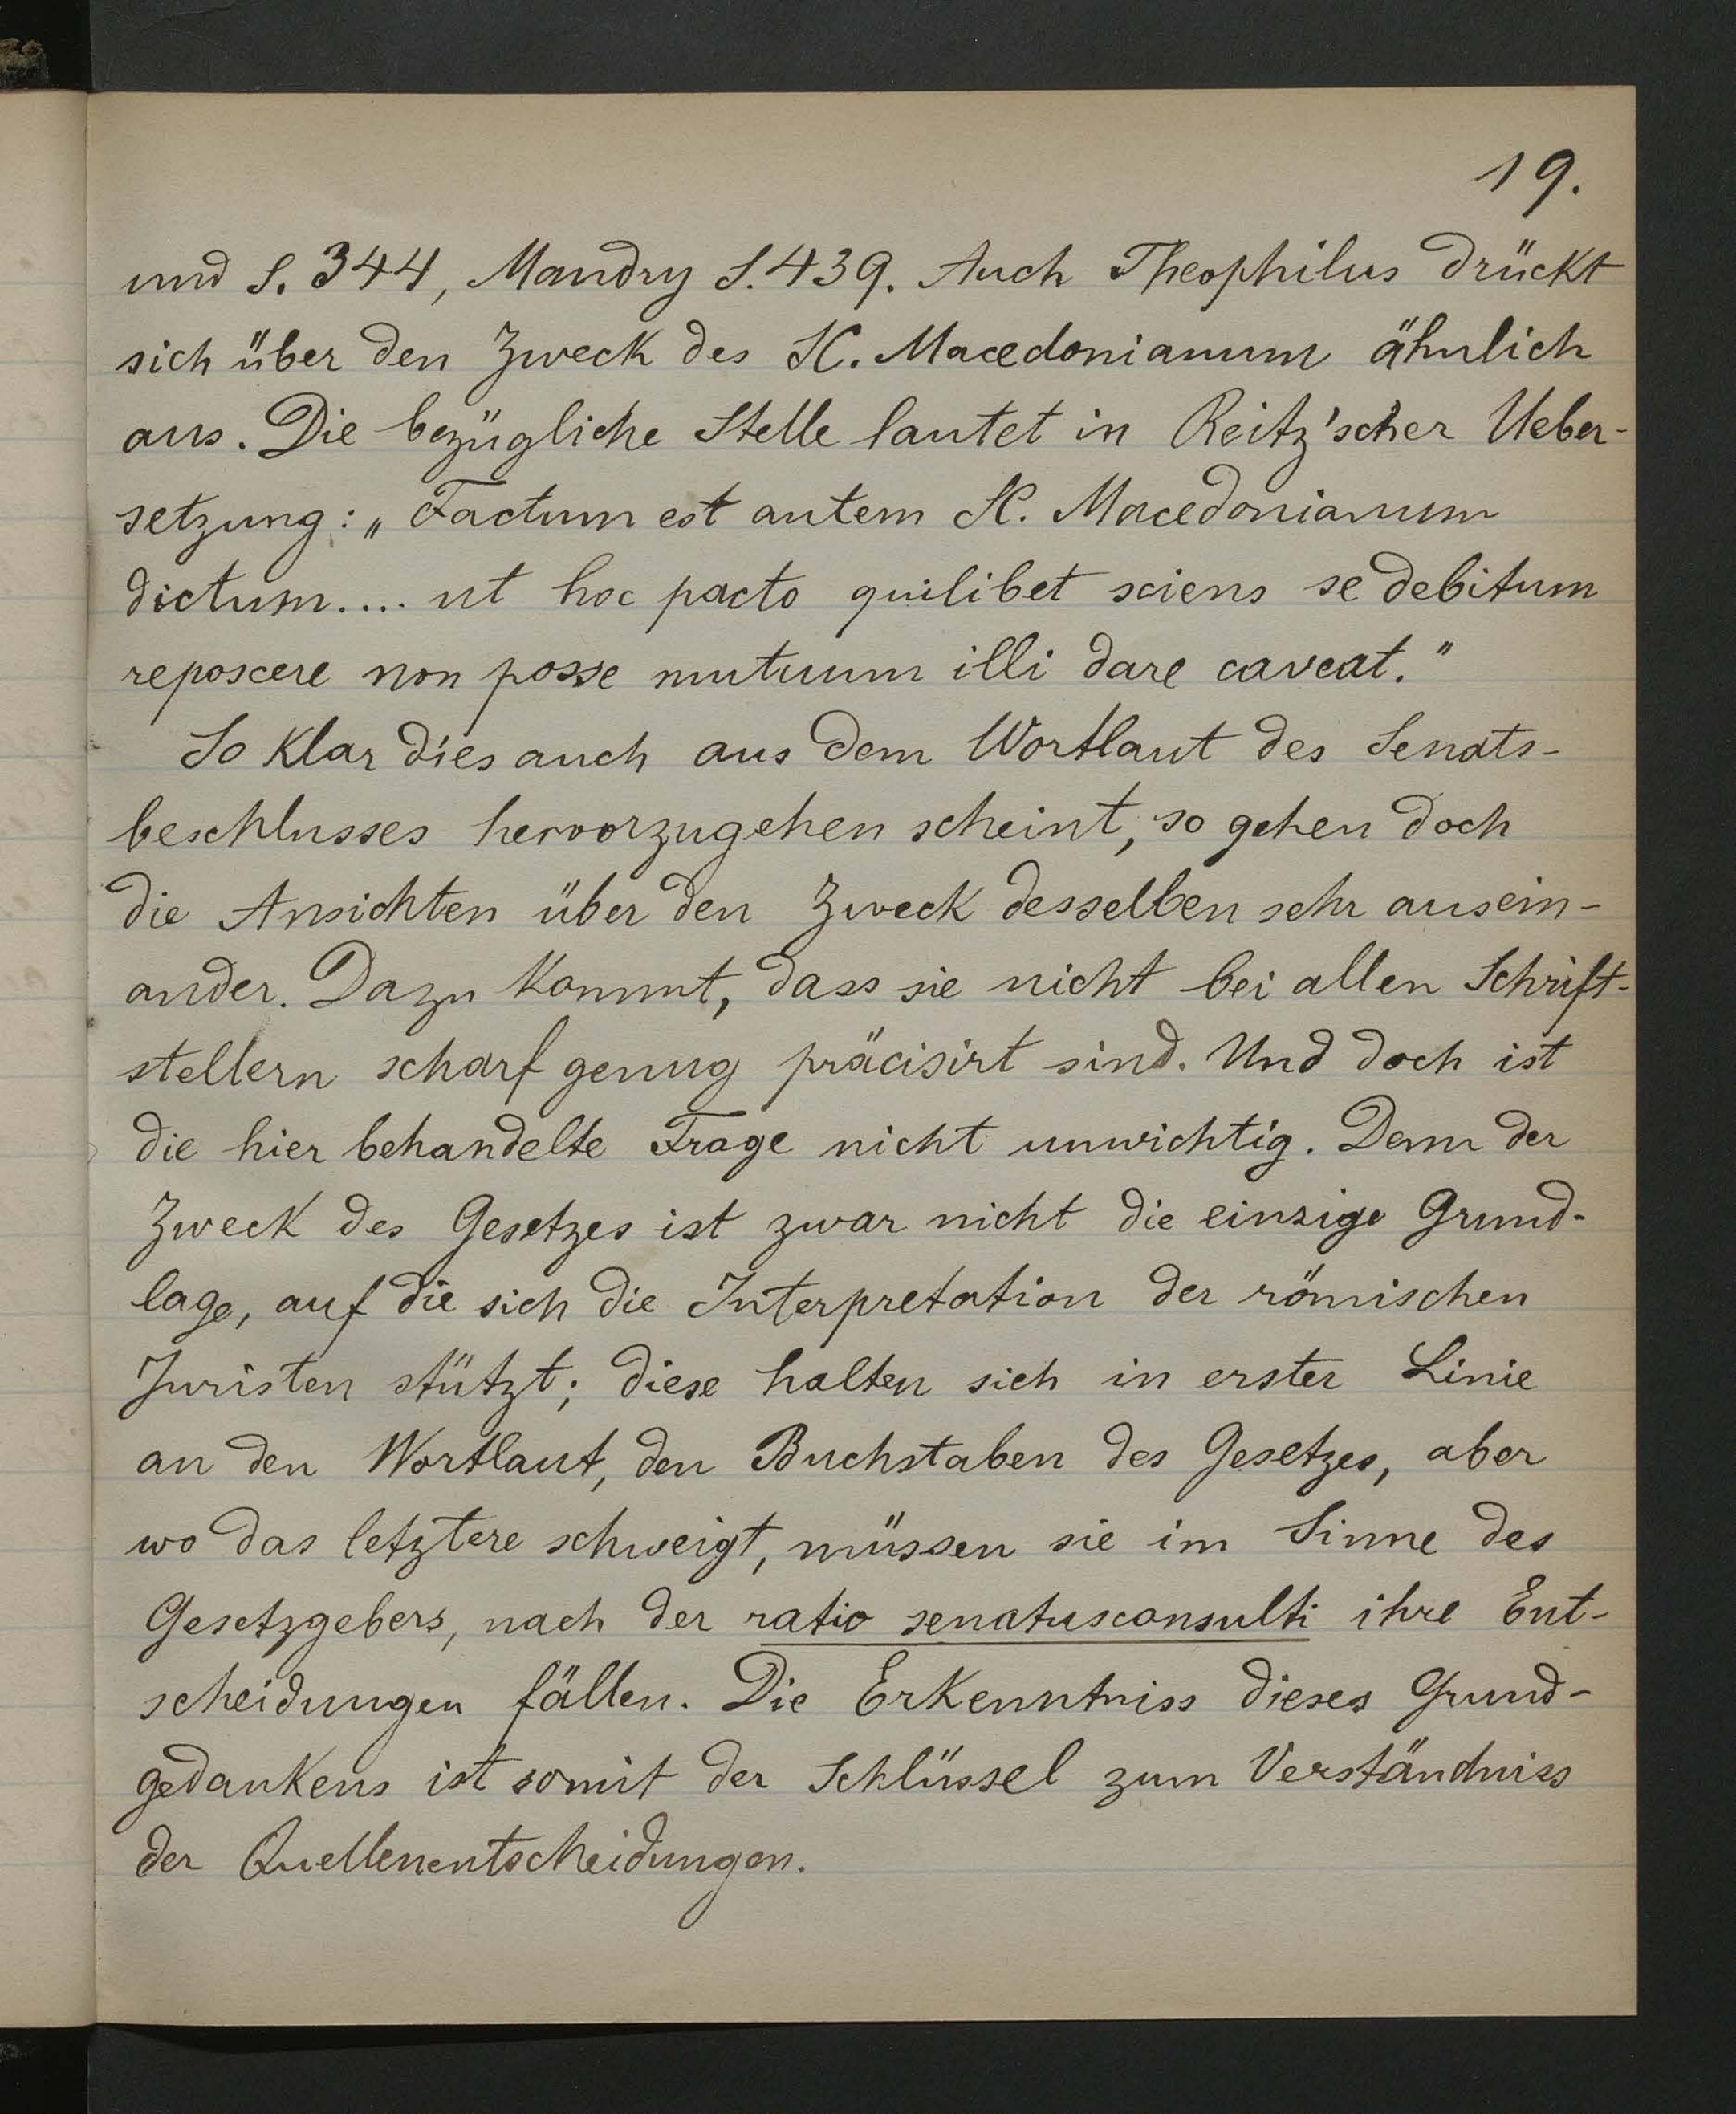 19.
und S. 344, Mandry S. 439. Auch Theophilus drückt
sich über den Zweck des SC. Macedonianum ähnlich
aus. Die bezügliche Stelle lautet in Reitz'scher Ueber-
setzung: „Factum est autem SC. Macedonianum
dictum.... ut hoc pacto quilibet sciens se debitum
reposcere non posse mutuum illi dare caveat."
So klar dies auch aus dem Wortlaut des Senats-
beschlusses hervorzugehen scheint, so gehen doch
die Ansichten über den Zweck desselben sehr ausein-
ander. Dazu kommt, dass sie nicht bei allen Schrift-
stellern scharf genug präcisirt sind. Und doch ist
die hier behandelte Frage nicht unwichtig. Denn der
Zweck des Gesetzes ist zwar nicht die einzige Grund-
lage, auf die sich die Interpretation der römischen
Juristen stützt; diese halten sich in erster Linie
an den Wortlaut, den Buchstaben des Gesetzes, aber
wo das letztere schweigt, müssen sie im Sinne des
Gesetzgebers, nach der ratio senatusconsulti ihre Ent-
scheidungen fällen. Die Erkenntniss dieses Grund-
gedankens ist somit der Schlüssel zum Verständniss
der Quellenentscheidungen.